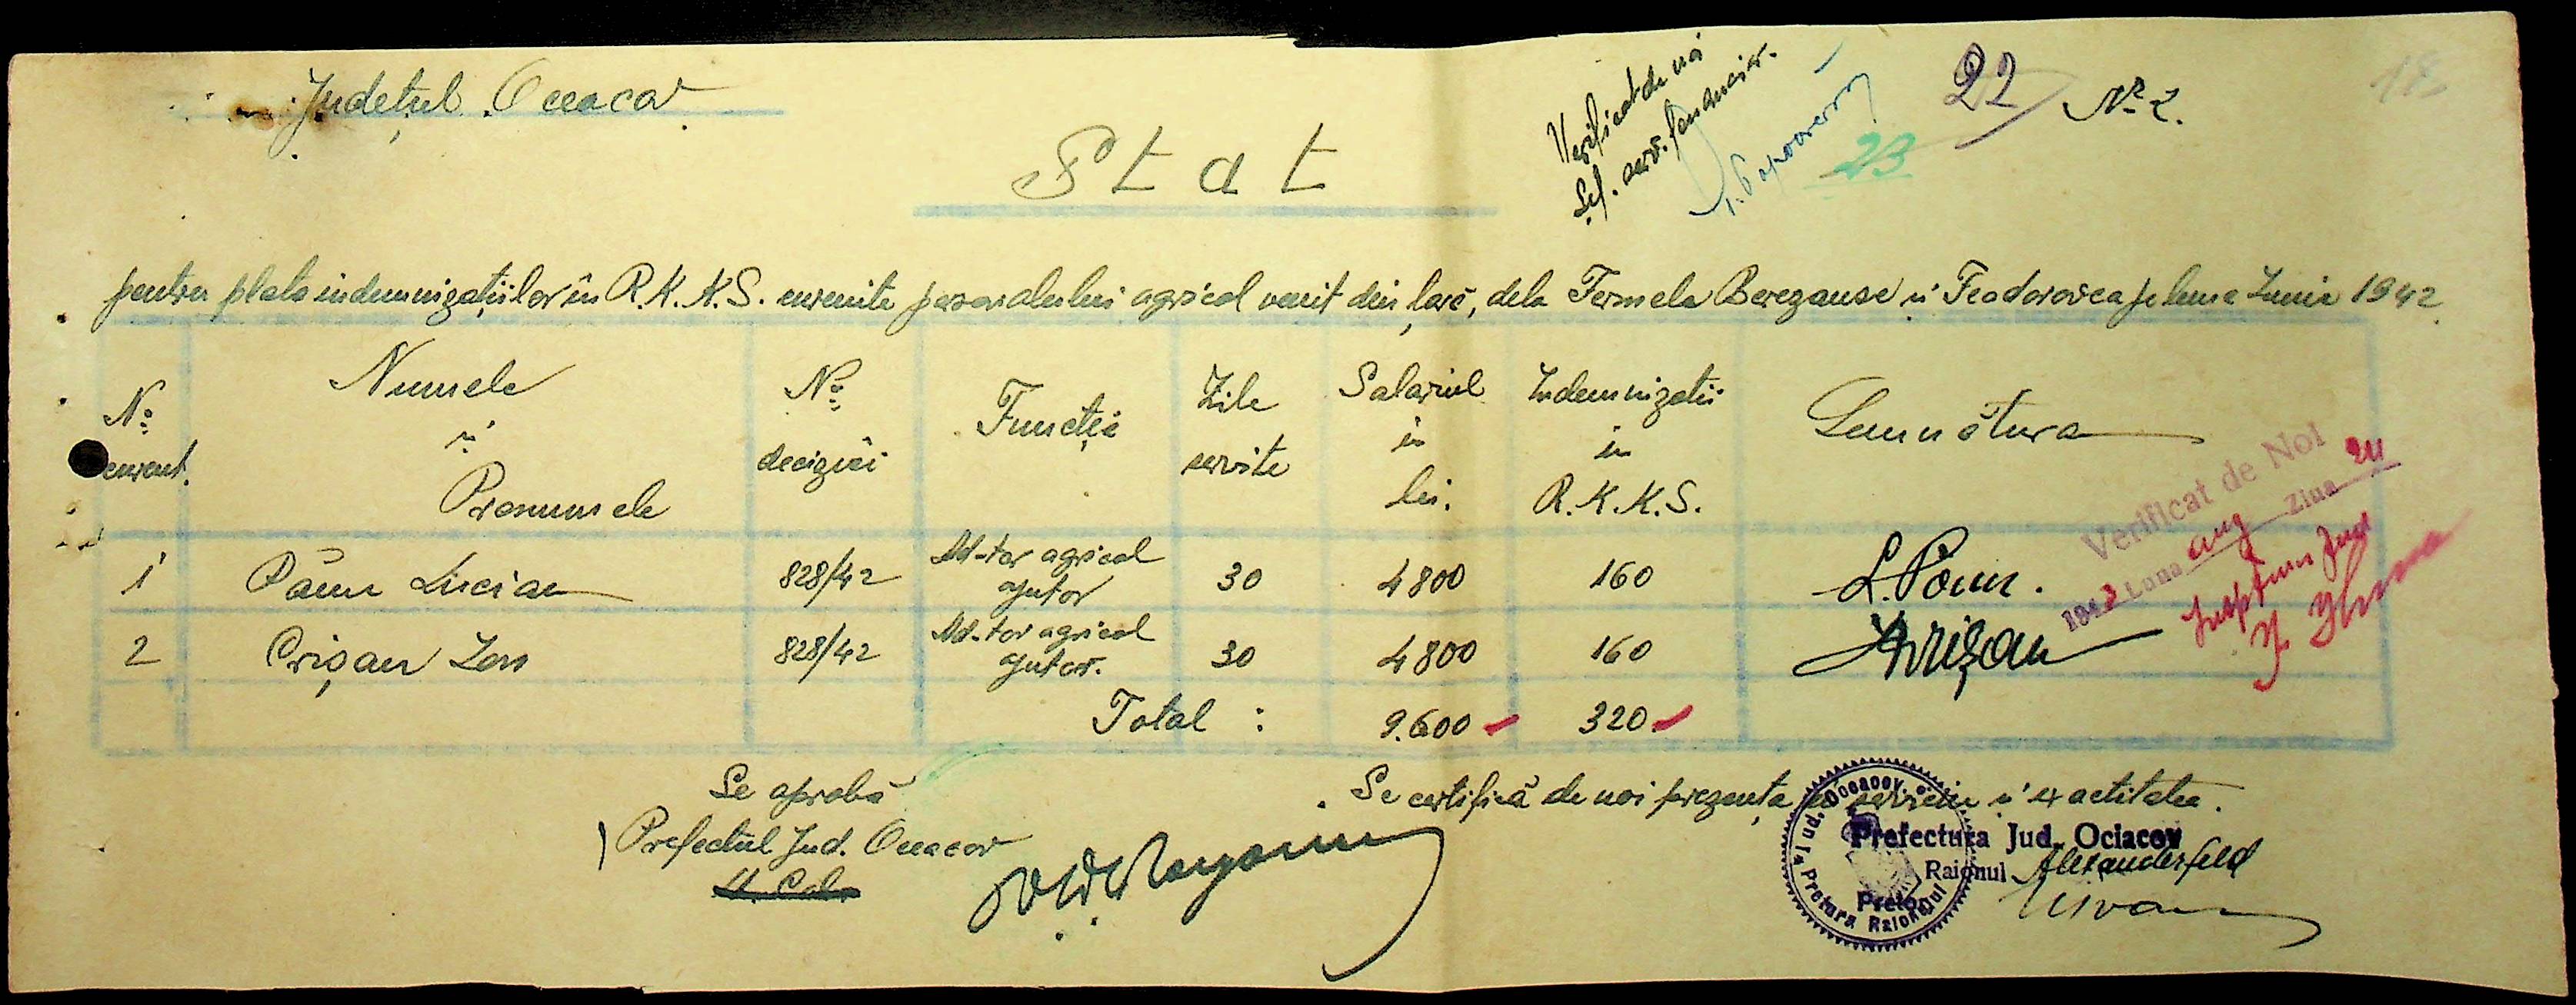 Județul Oceacov
22
Nº 2.
Verificat de noi
Șef. serv. financiar.
23
Stat
pentru plata indemnizațiilor în R.K.K.S. cuvenite personalului agricol venit din țară, dela Fermele Berezanse și Feodorovca pe luna Iunie 1942
Nº curent.
Numele și Pronumele
Nº deciziei
Funcția
Zile servite
Salariul în lei.
Indemnizatii în R.K.K.S.
Semnătura
1 Păun Lucian 828/42 Ad-tor agricol ajutor 30 4800 160 L. Păun.
2 Crișan Ion 828/42 Ad-tor agricol ajutor. 30 4800 160 Crișan
Total : 9.600 320
Verificat de Noi
1942 Luna aug Ziua 24
Se aprobă
Prefectul Jud. Oceacov
Se certifică de noi prezența în serviciu și exactitatea.
Prefectura Jud. Ociacov
Raionul Alexanderfeld
Pretor
Jud. Oceacov
Pretura Raionului